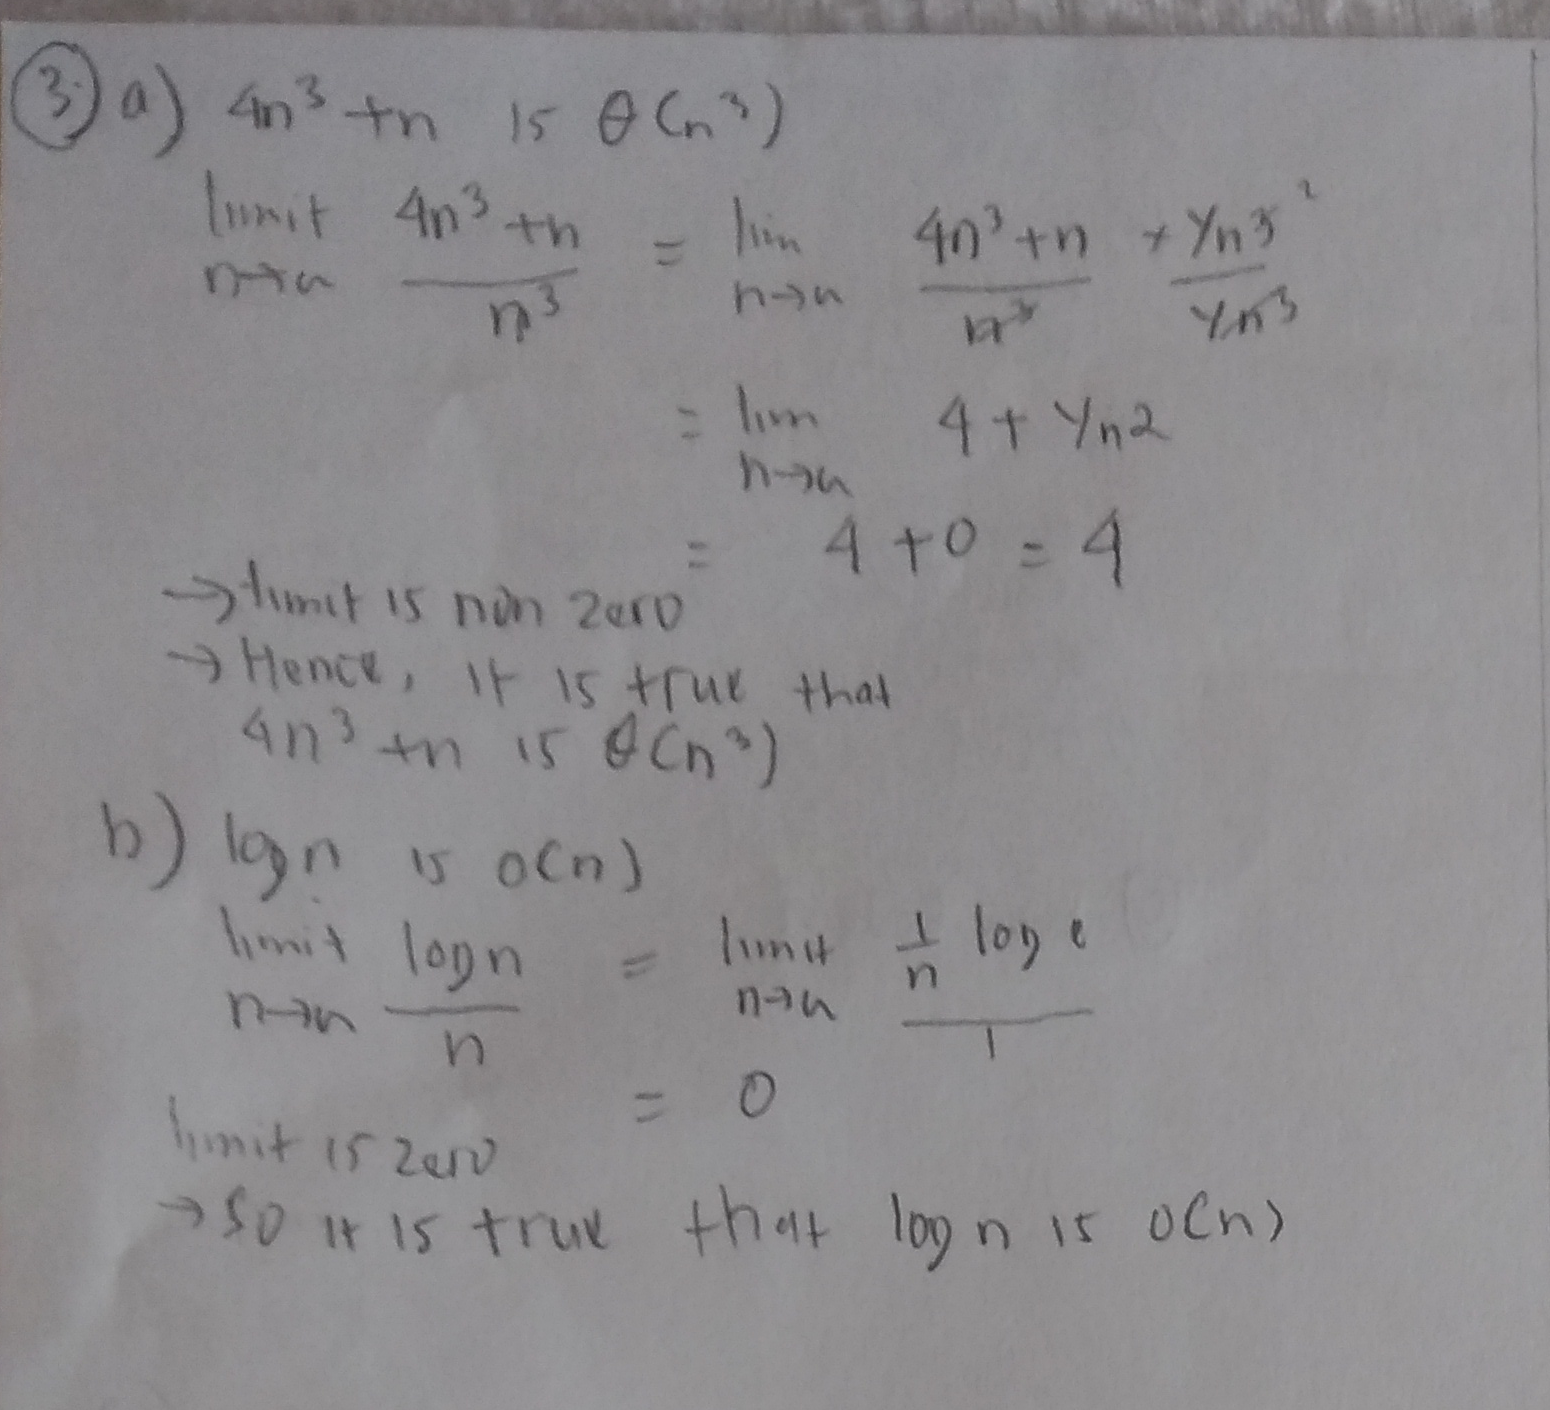 3. a) 4n³ + n is θ(n³)
limit n→α (4n³ + n)/n³ = lim n→α (4n³ + n)/n³ × (1/n³)/(1/n³)
= lim n→α 4 + 1/n2
= 4 + 0 = 4
→ limit is non zero
→ Hence, it is true that
4n³ + n is θ(n³)
b) log n is o(n)
limit n→α log n / n = limit n→α (1/n log e)/1
= 0
limit is zero
→ So it is true that log n is o(n)